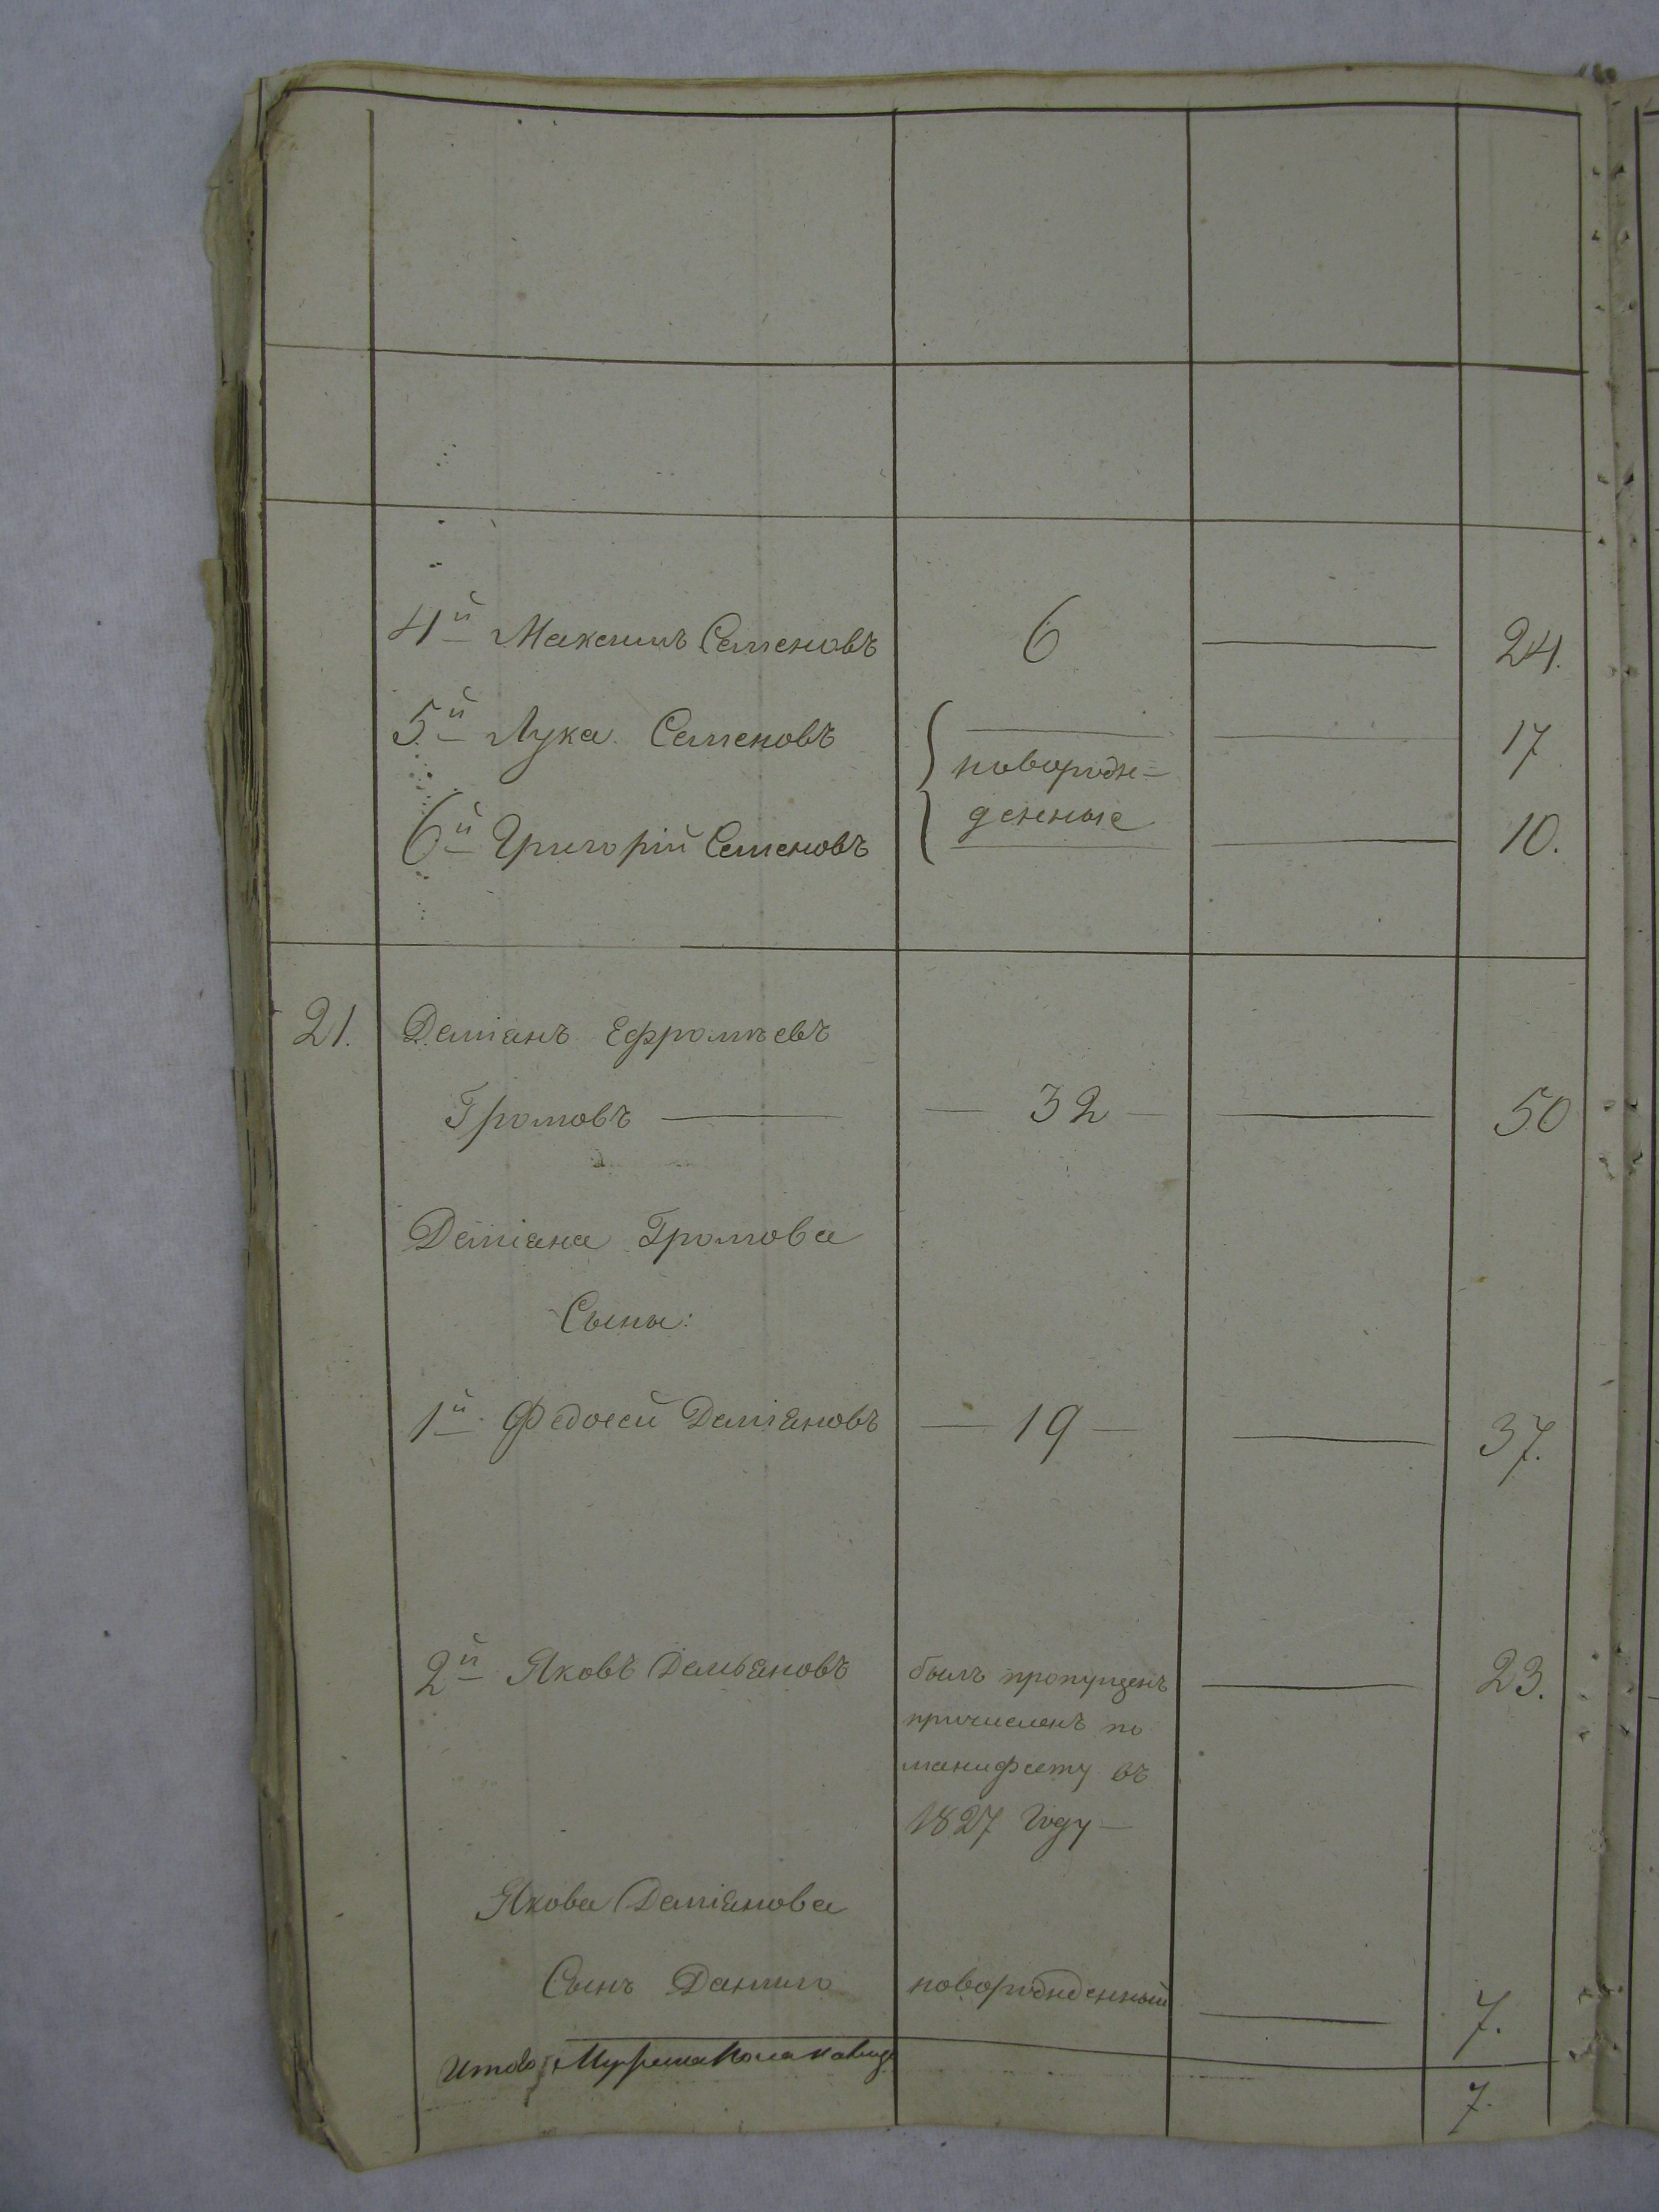 4й Максимъ Семеновъ 6 — 24.
5й Лука Семеновъ — 17
новорож=
денные
6й Григорій Семеновъ — 10.
21. Деміанъ Ефромѣевъ
Громовъ — 32 — 50
Деміана Громова
Сыны:
1й Федосей Деміановъ — 19 — 37.
2й Яковъ Демьяновъ былъ пропущенъ — 23.
причисленъ по
манифесту въ
1827 году —
Якова Деміанова
Сынъ Данило новорожденный — 7.
Итого мужеска пола на лицо
7.